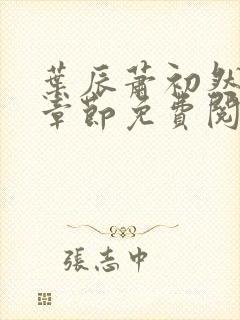 葉辰蕭初然
章節免費閱
張志中